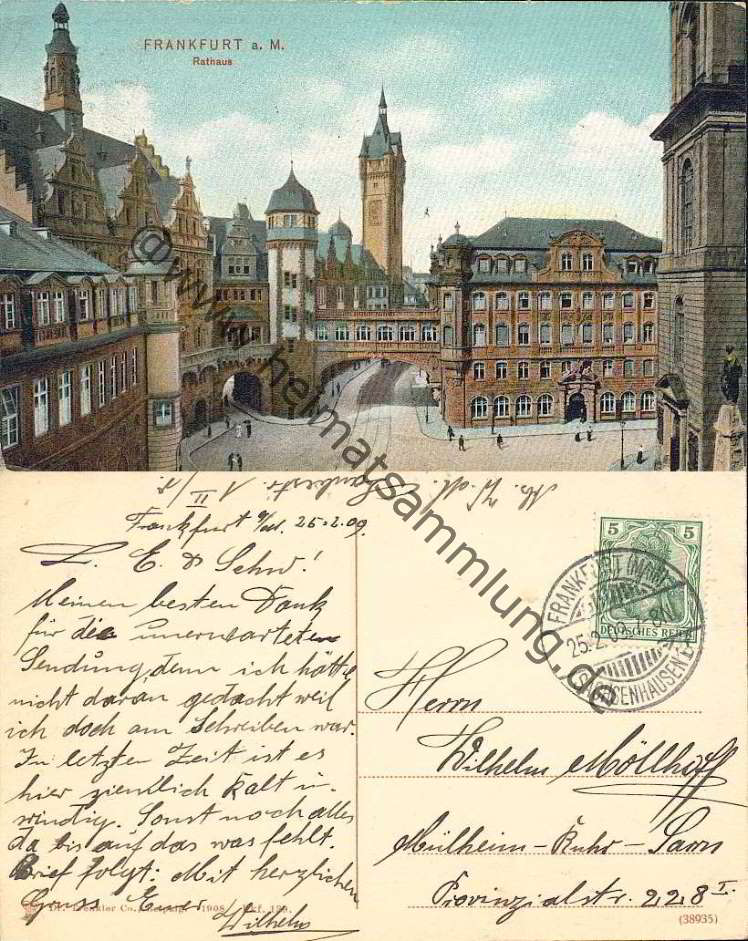 FRANKFURT a. M.
Rathaus
@www.heimatsammlung.de
1/II
Frankfurt a/M. 25.2.09.
L. E. & Schw!
Meinen besten Dank
für die unerwarteten
Sendung, denn ich hätte
nicht daran gedacht weil
ich doch am Schreiben war.
In letzten Zeit ist es
hier ziemlich kalt u.
windig. Sonst noch alles
da bis auf das was fehlt.
Brief folgt: Mit herzlichen
Gruss Euer
Wilhelm
5 5
DEUTSCHES REICH
FRANKFURT (MAIN)
25.2.09. 1-8N
SACHSENHAUSEN
Herrn
Wilhelm Möllhoff
Mülheim-Ruhr-Saarn
Provinzialstr. 228 I.
Dr. Trenkler Co., Leipzig. 1908. Fkf. 129.
(38935)